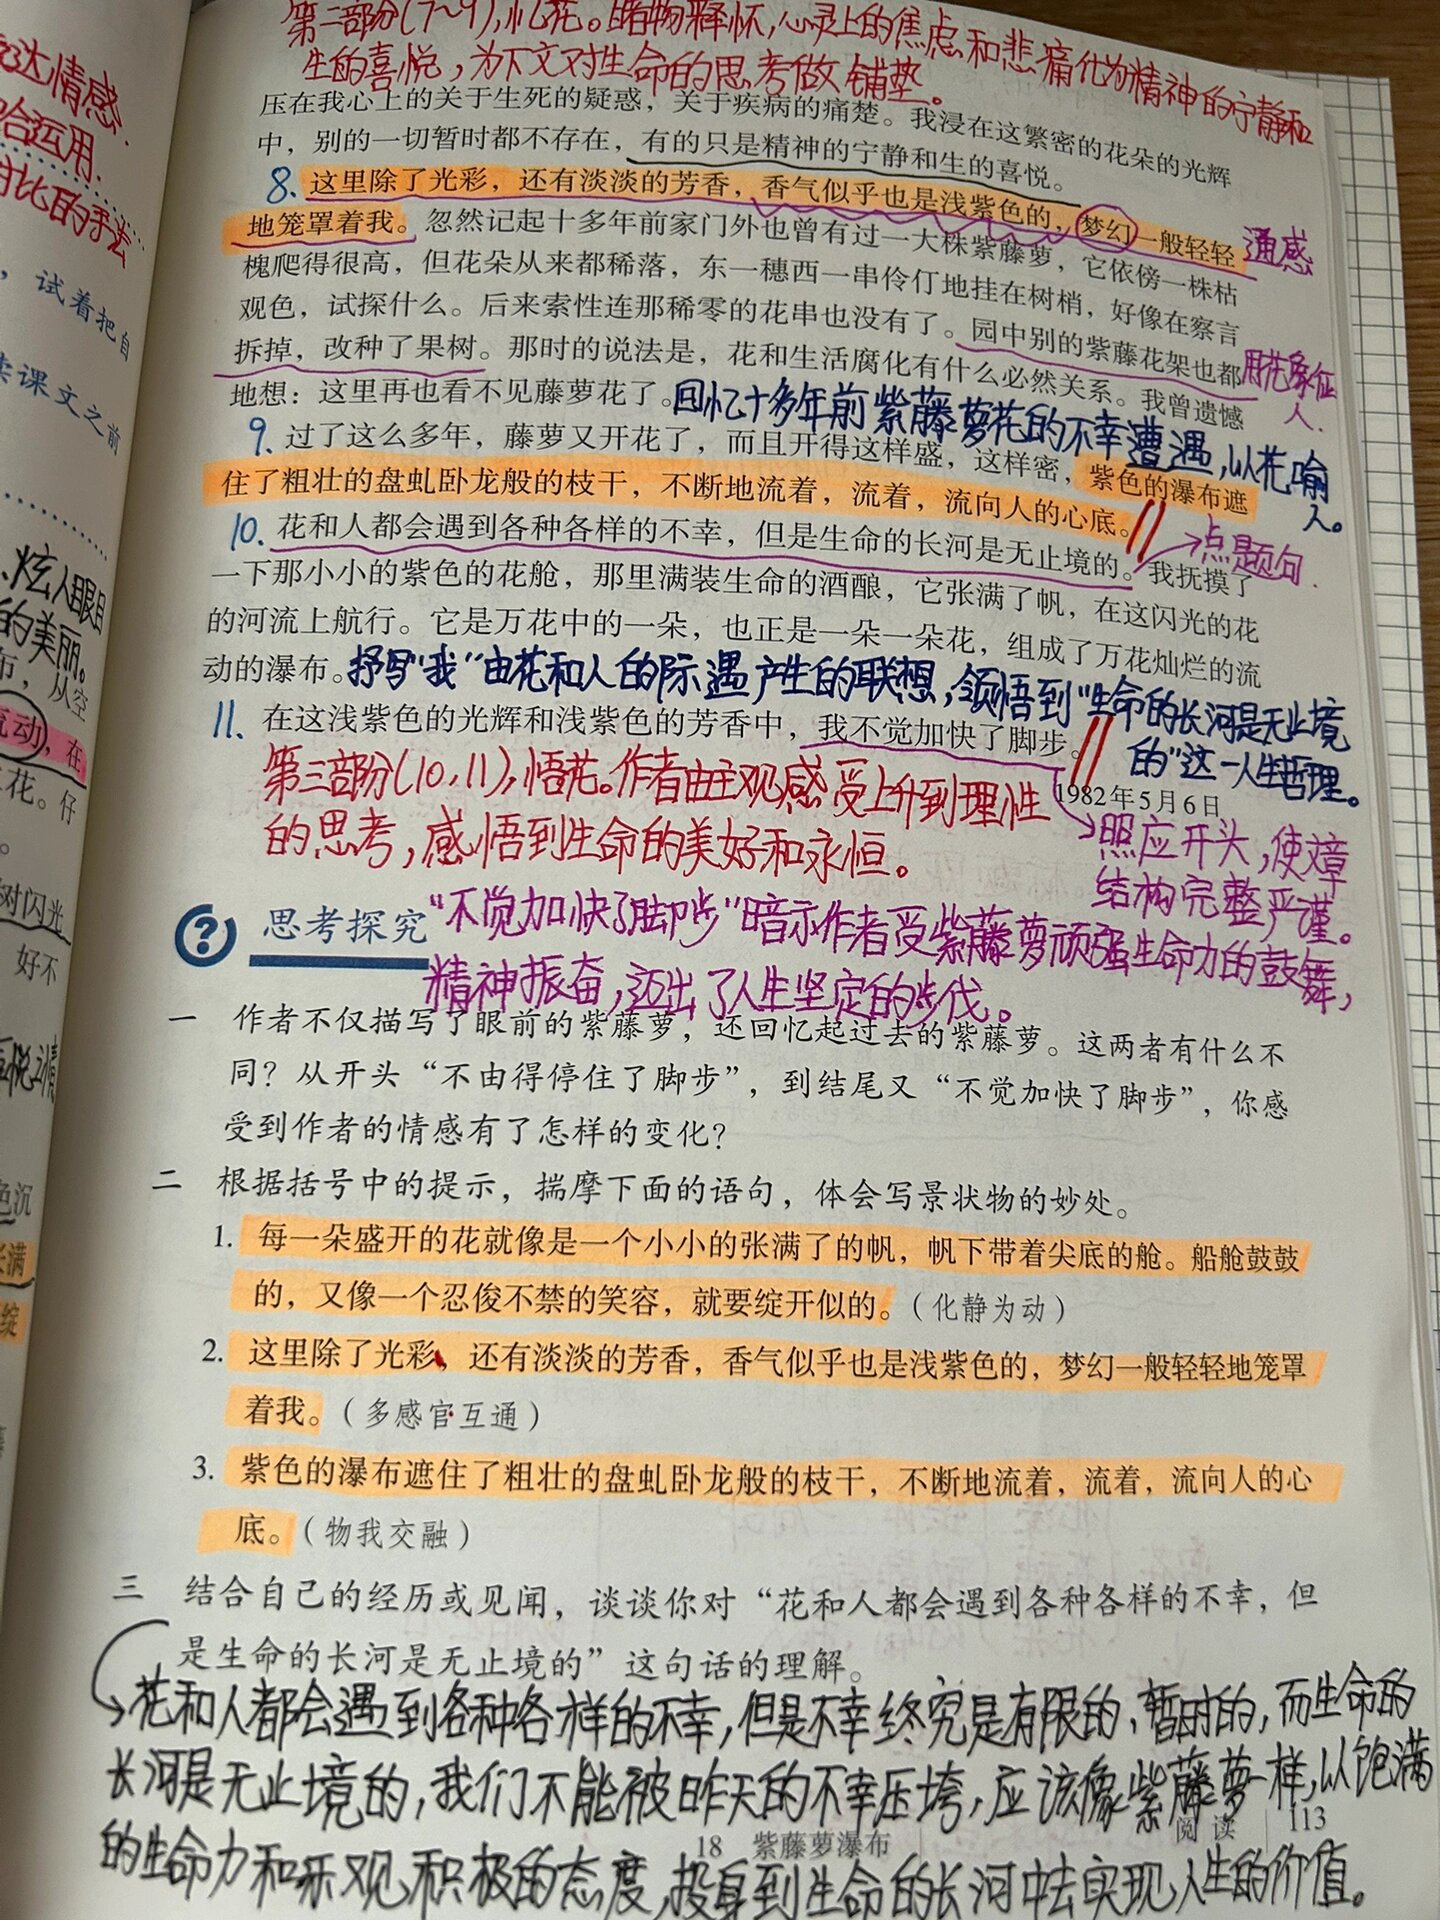 第二部分(7~9),忆花。睹物释怀,心灵上的焦虑和悲痛化为精神的宁静和
生的喜悦,为下文对生命的思考做铺垫。
压在我心上的关于生死的疑惑，关于疾病的痛楚。我浸在这繁密的花朵的光辉
中，别的一切暂时都不存在，有的只是精神的宁静和生的喜悦。
8. 这里除了光彩，还有淡淡的芳香，香气似乎也是浅紫色的，梦幻一般轻轻
地笼罩着我。忽然记起十多年前家门外也曾有过一大株紫藤萝，它依傍一株枯
通感
槐爬得很高，但花朵从来都稀落，东一穗西一串伶仃地挂在树梢，好像在察言
观色，试探什么。后来索性连那稀零的花串也没有了。园中别的紫藤花架也都
拆掉，改种了果树。那时的说法是，花和生活腐化有什么必然关系。我曾遗憾
用花象征
人.
地想：这里再也看不见藤萝花了。
回忆十多年前紫藤萝花的不幸遭遇,以花喻
人。
9. 过了这么多年，藤萝又开花了，而且开得这样盛，这样密，紫色的瀑布遮
住了粗壮的盘虬卧龙般的枝干，不断地流着，流着，流向人的心底。
10. 花和人都会遇到各种各样的不幸，但是生命的长河是无止境的。我抚摸了
点题句.
一下那小小的紫色的花舱，那里满装生命的酒酿，它张满了帆，在这闪光的花
的河流上航行。它是万花中的一朵，也正是一朵一朵花，组成了万花灿烂的流
动的瀑布。
抒写"我"由花和人的际遇产生的联想,领悟到"生命的长河是无止境
的"这一人生哲理。
11. 在这浅紫色的光辉和浅紫色的芳香中，我不觉加快了脚步。
1982年5月6日
第三部分(10,11),悟花。作者由主观感受上升到理性
的思考,感悟到生命的美好和永恒。
照应开头,使文章
结构完整严谨。
思考探究
"不觉加快了脚步"暗示作者受紫藤萝顽强生命力的鼓舞,
精神振奋,迈出了人生坚定的步伐。
一 作者不仅描写了眼前的紫藤萝，还回忆起过去的紫藤萝。这两者有什么不
同？从开头“不由得停住了脚步”，到结尾又“不觉加快了脚步”，你感
受到作者的情感有了怎样的变化？
二 根据括号中的提示，揣摩下面的语句，体会写景状物的妙处。
1. 每一朵盛开的花就像是一个小小的张满了的帆，帆下带着尖底的舱。船舱鼓鼓
的，又像一个忍俊不禁的笑容，就要绽开似的。（化静为动）
2. 这里除了光彩，还有淡淡的芳香，香气似乎也是浅紫色的，梦幻一般轻轻地笼罩
着我。（多感官互通）
3. 紫色的瀑布遮住了粗壮的盘虬卧龙般的枝干，不断地流着，流着，流向人的心
底。（物我交融）
三 结合自己的经历或见闻，谈谈你对“花和人都会遇到各种各样的不幸，但
是生命的长河是无止境的”这句话的理解。
花和人都会遇到各种各样的不幸,但是不幸终究是有限的、暂时的,而生命的
长河是无止境的,我们不能被昨天的不幸压垮,应该像紫藤萝一样,以饱满
的生命力和乐观积极的态度,投身到生命的长河中去实现人生的价值。
18 紫藤萝瀑布
阅读 113
达情感
合运用.
对比的手法
试着把自
读课文之前
炫人眼目
的美丽。
布，从空
流动，在
花。仔
时闪光
好不
色沉
张满
绽